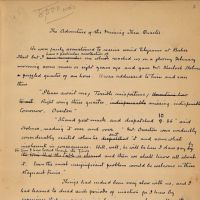 The Adventure of the Missing Three Quarter
We were fairly accustomed to receive weird telegrams at Baker
Street but I have a particular recollection of one which reached us on a gloomy February
morning some seven or eight years ago and gave Mr Sherlock Holmes
a puzzled quarter of an hour. It was addressed to him and ran
thus
"Please await me. Terrible misfortune,
Right wing three quarter missing indispensable
tomorrow. Overton"
"Strand post mark and despatched 9.36" said
Holmes, reading it over and over. "Mr Overton was evidently
considerably excited when he sent it and somewhat
incoherent in consequence. Well, well, he will be here I dare say by
the time and then we shall know all about
it. Even the most insignificant problem would be welcome in these
stagnant times"
Things had indeed been very slow with us, and I
had learned to dread such periods of inaction for I knew by